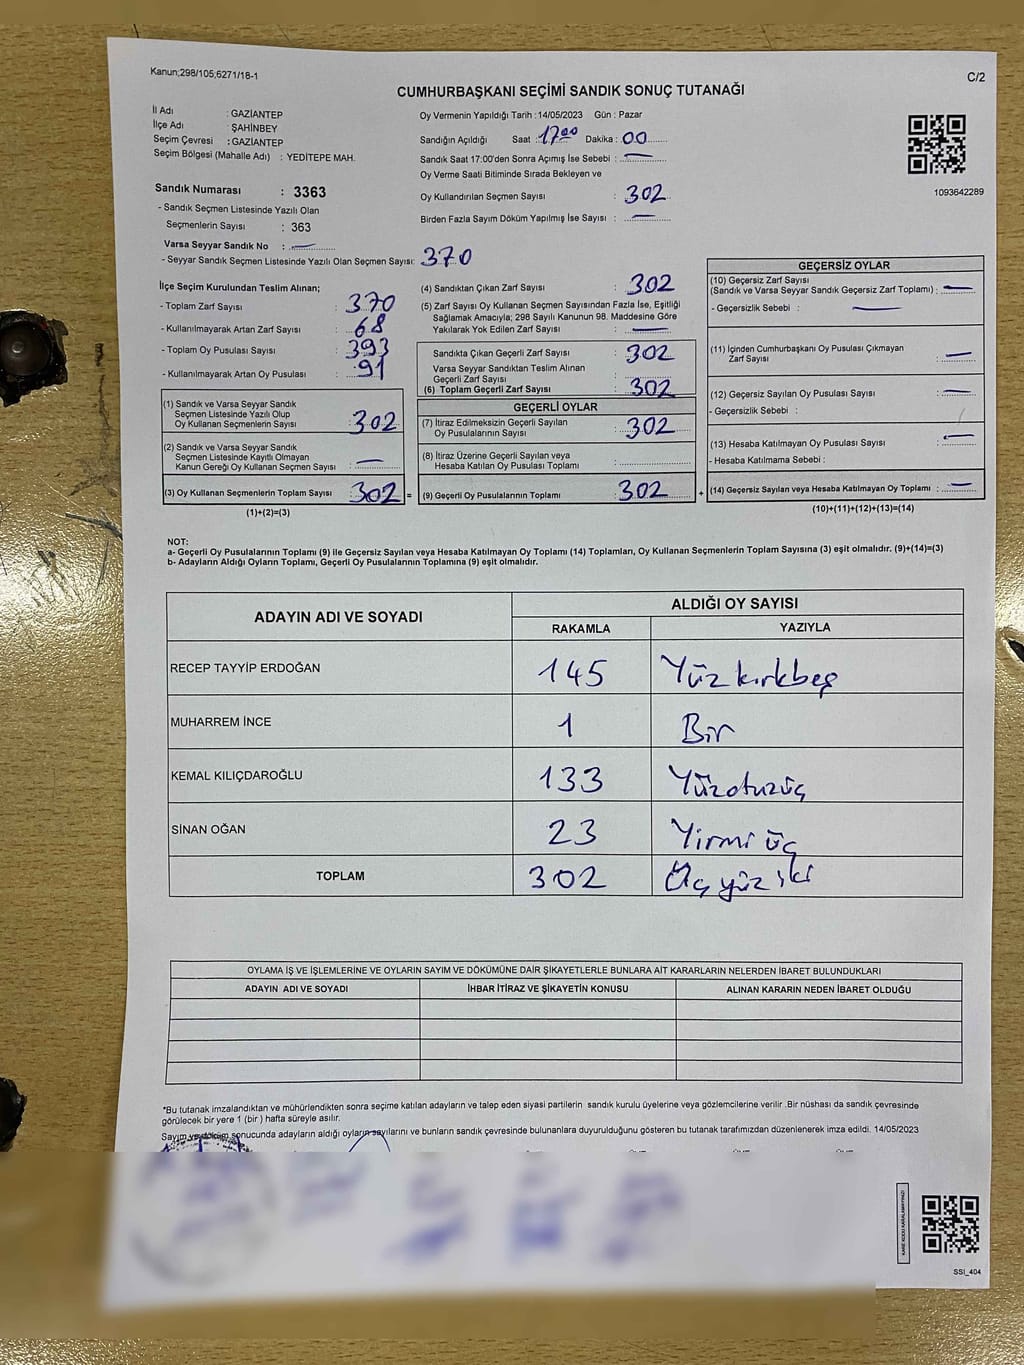 Kanun;298/105;6271/18-1
C/2
CUMHURBAŞKANI SEÇİMİ SANDIK SONUÇ TUTANAĞI
İl Adı : GAZİANTEP
İlçe Adı : ŞAHİNBEY
Seçim Çevresi : GAZİANTEP
Seçim Bölgesi (Mahalle Adı) : YEDİTEPE MAH.
Sandık Numarası : 3363
- Sandık Seçmen Listesinde Yazılı Olan
Seçmenlerin Sayısı : 363
Varsa Seyyar Sandık No : —
- Seyyar Sandık Seçmen Listesinde Yazılı Olan Seçmen Sayısı: 370
Oy Vermenin Yapıldığı Tarih : 14/05/2023 Gün : Pazar
Sandığın Açıldığı Saat : 17 00 Dakika : 00
Sandık Saat 17:00'den Sonra Açımış İse Sebebi : —
Oy Verme Saati Bitiminde Sırada Bekleyen ve
Oy Kullandırılan Seçmen Sayısı : 302
Birden Fazla Sayım Döküm Yapılmış İse Sayısı : —
1093642289
İlçe Seçim Kurulundan Teslim Alınan;
- Toplam Zarf Sayısı : 370
- Kullanılmayarak Artan Zarf Sayısı : 68
- Toplam Oy Pusulası Sayısı : 393
- Kullanılmayarak Artan Oy Pusulası : 91
(1) Sandık ve Varsa Seyyar Sandık
Seçmen Listesinde Yazılı Olup
Oy Kullanan Seçmenlerin Sayısı : 302
(2) Sandık ve Varsa Seyyar Sandık
Seçmen Listesinde Kayıtlı Olmayan
Kanun Gereği Oy Kullanan Seçmen Sayısı : —
(3) Oy Kullanan Seçmenlerin Toplam Sayısı : 302 =
(1)+(2)=(3)
(4) Sandıktan Çıkan Zarf Sayısı : 302
(5) Zarf Sayısı Oy Kullanan Seçmen Sayısından Fazla İse, Eşitliği
Sağlamak Amacıyla; 298 Sayılı Kanunun 98. Maddesine Göre
Yakılarak Yok Edilen Zarf Sayısı : —
Sandıkta Çıkan Geçerli Zarf Sayısı : 302
Varsa Seyyar Sandıktan Teslim Alınan
Geçerli Zarf Sayısı :
(6) Toplam Geçerli Zarf Sayısı : 302
GEÇERLİ OYLAR
(7) İtiraz Edilmeksizin Geçerli Sayılan
Oy Pusulalarının Sayısı : 302
(8) İtiraz Üzerine Geçerli Sayılan veya
Hesaba Katılan Oy Pusulası Toplamı :
(9) Geçerli Oy Pusulalarının Toplamı : 302 +
GEÇERSİZ OYLAR
(10) Geçersiz Zarf Sayısı
(Sandık ve Varsa Seyyar Sandık Geçersiz Zarf Toplamı) : —
- Geçersizlik Sebebi : —
(11) İçinden Cumhurbaşkanı Oy Pusulası Çıkmayan
Zarf Sayısı : —
(12) Geçersiz Sayılan Oy Pusulası Sayısı : —
- Geçersizlik Sebebi :
(13) Hesaba Katılmayan Oy Pusulası Sayısı : —
- Hesaba Katılmama Sebebi :
(14) Geçersiz Sayılan veya Hesaba Katılmayan Oy Toplamı : —
(10)+(11)+(12)+(13)=(14)
NOT:
a- Geçerli Oy Pusulalarının Toplamı (9) ile Geçersiz Sayılan veya Hesaba Katılmayan Oy Toplamı (14) Toplamları, Oy Kullanan Seçmenlerin Toplam Sayısına (3) eşit olmalıdır. (9)+(14)=(3)
b- Adayların Aldığı Oyların Toplamı, Geçerli Oy Pusulalarının Toplamına (9) eşit olmalıdır.
ADAYIN ADI VE SOYADI ALDIĞI OY SAYISI
RAKAMLA YAZIYLA
RECEP TAYYİP ERDOĞAN 145 Yüz kırkbeş
MUHARREM İNCE 1 Bir
KEMAL KILIÇDAROĞLU 133 Yüzotuzüç
SİNAN OĞAN 23 Yirmi üç
TOPLAM 302 Üç yüz iki
OYLAMA İŞ VE İŞLEMLERİNE VE OYLARIN SAYIM VE DÖKÜMÜNE DAİR ŞİKAYETLERLE BUNLARA AİT KARARLARIN NELERDEN İBARET BULUNDUKLARI
ADAYIN ADI VE SOYADI İHBAR İTİRAZ VE ŞİKAYETİN KONUSU ALINAN KARARIN NEDEN İBARET OLDUĞU
*Bu tutanak imzalandıktan ve mühürlendikten sonra seçime katılan adayların ve talep eden siyasi partilerin sandık kurulu üyelerine veya gözlemcilerine verilir .Bir nüshası da sandık çevresinde
görülecek bir yere 1 (bir ) hafta süreyle asılır.
Sayım ve döküm sonucunda adayların aldığı oyların sayılarını ve bunların sandık çevresinde bulunanlara duyurulduğunu gösteren bu tutanak tarafımızdan düzenlenerek imza edildi. 14/05/2023
KARE KODU KARALAMAYINIZ!
SSI_404